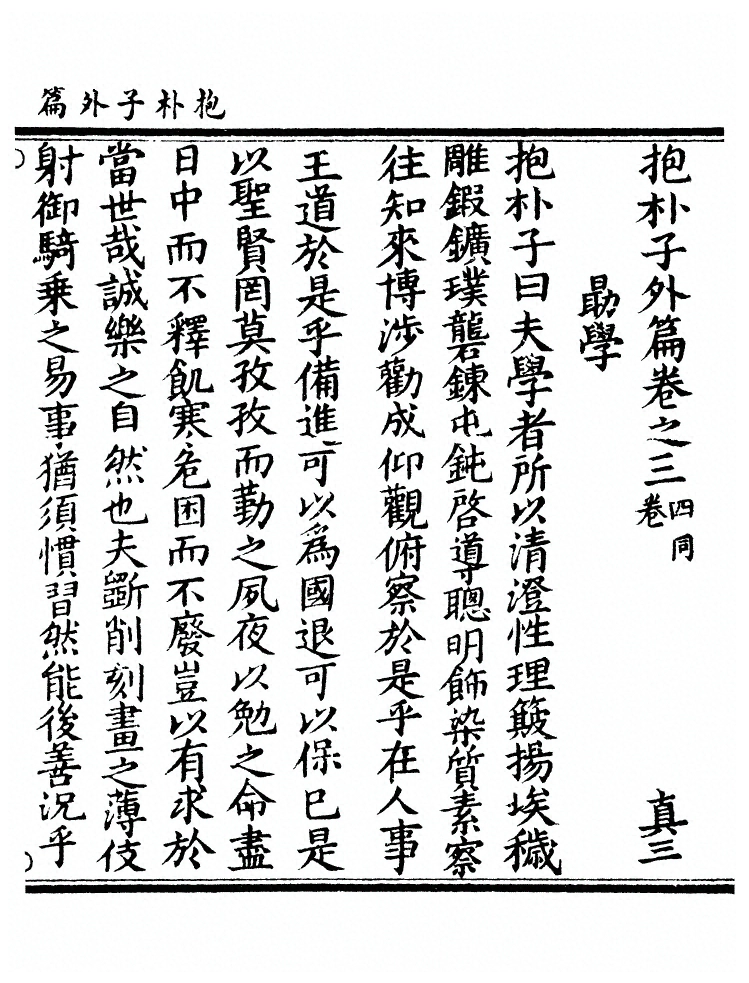 抱朴子外篇
抱朴子外篇卷之三 四同卷 真三
勗學
抱朴子曰夫學者所以清澄性理簸揚埃穢
雕鍛鑛璞礱鍊屯鈍啓導聰明飾染質素察
往知來博涉勸成仰觀俯察於是乎在人事
王道於是乎備進可以爲國退可以保已是
以聖賢罔莫孜孜而勤之夙夜以勉之命盡
日中而不釋飢寒危困而不廢豈以有求於
當世哉誠樂之自然也夫斲削刻畫之薄伎
射御騎乗之易事猶須慣習然能後善況乎